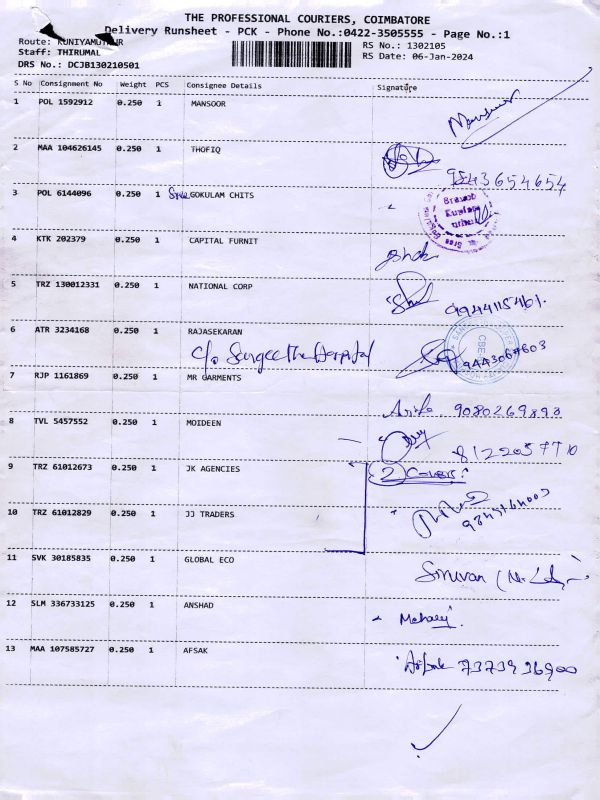 THE PROFESSIONAL COURIERS, COIMBATORE
Delivery Runsheet - PCK - Phone No.:0422-3505555 - Page No.:1
Route: KUNIYAMUTHUR
RS No.: 1302105
Staff: THIRUMAL
RS Date: 06-Jan-2024
DRS No.: DCJB130210501
S No Consignment No Weight PCS Consignee Details Signature
1 POL 1592912 0.250 1 MANSOOR
Mansoor
2 MAA 104626145 0.250 1 THOFIQ
9543654654
3 POL 6144096 0.250 1 Sree GOKULAM CHITS
4 KTK 202379 0.250 1 CAPITAL FURNIT
5 TRZ 130012331 0.250 1 NATIONAL CORP
9944115461.
6 ATR 3234168 0.250 1 RAJASEKARAN
C/o Sangeetha Hospital
9443067603
7 RJP 1161869 0.250 1 MR GARMENTS
9080269893
8 TVL 5457552 0.250 1 MOIDEEN
9 TRZ 61012673 0.250 1 JK AGENCIES
2 Covers
10 TRZ 61012829 0.250 1 JJ TRADERS
11 SVK 30185835 0.250 1 GLOBAL ECO
12 SLM 336733125 0.250 1 ANSHAD
13 MAA 107585727 0.250 1 AFSAK